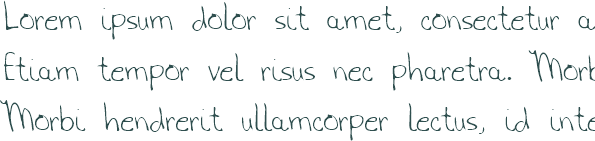 Lorem ipsum dolor sit amet, consectetur a
Etiam tempor vel risus nec pharetra. Morb
Morbi hendrerit ullamcorper lectus, id inte